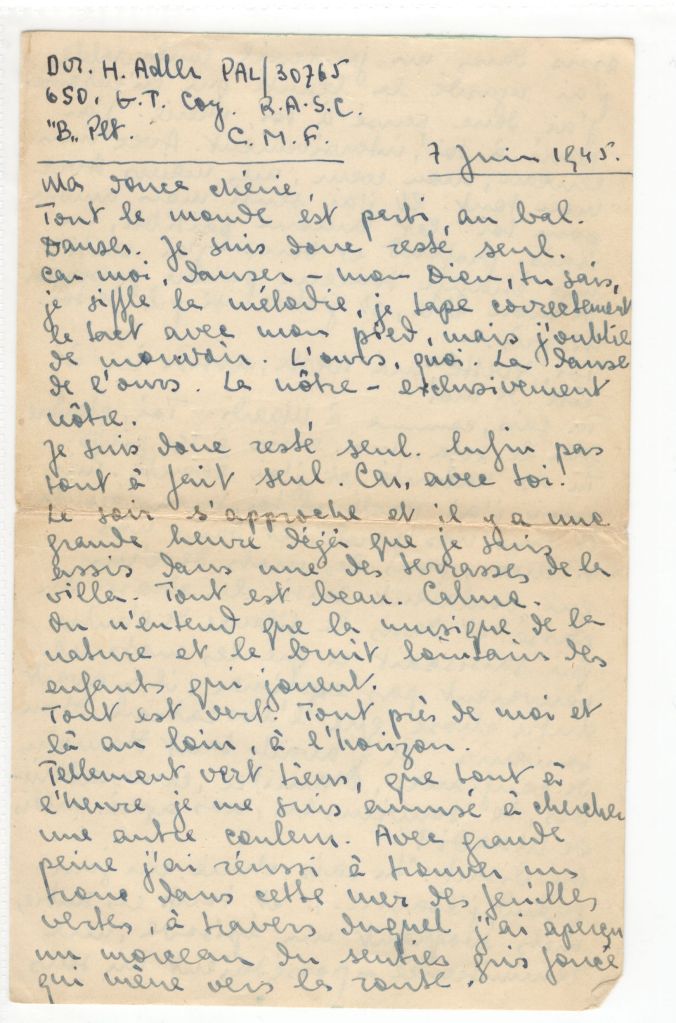 Dvr. H. Adler PAL/30765
650. G.T. Coy. R.A.S.C.
"B" Plt. C.M.F
7 Juin 1945.
Ma douce chérie
Tout le monde ést parti au bal.
Danser. Je suis donc resté seul.
Car moi, danser – mon Dieu, tu sais,
je siffle la mélodie, je tape correctement
le tact avec mon pied, mais j'oublie
de mouvoir. L'ours, quoi. La danse
de l'ours. La nôtre – exclusivement
nôtre.
Je suis donc resté seul. Enfin pas
tout à fait seul. Car, avec toi.
Le soir s'approche et il y a une
grande heure déjà que je suis
assis dans une des terrasses de la
villa. Tout est beau. Calme.
On n'entend que la musique de la
nature et le bruit lointain des
enfants qui jouent.
Tout est vert. Tout près de moi et
là au loin, à l'horizon.
Tellement vert tiens, que tout à
l'heure je me suis amusé à chercher
une autre couleur. Avec grande
peine j'ai réussi à trouver un
tronc dans cette mer des feuilles
vertes, à travers duquel j'ai aperçu
un morceau du sentier gris foncé
qui mène vers la route.